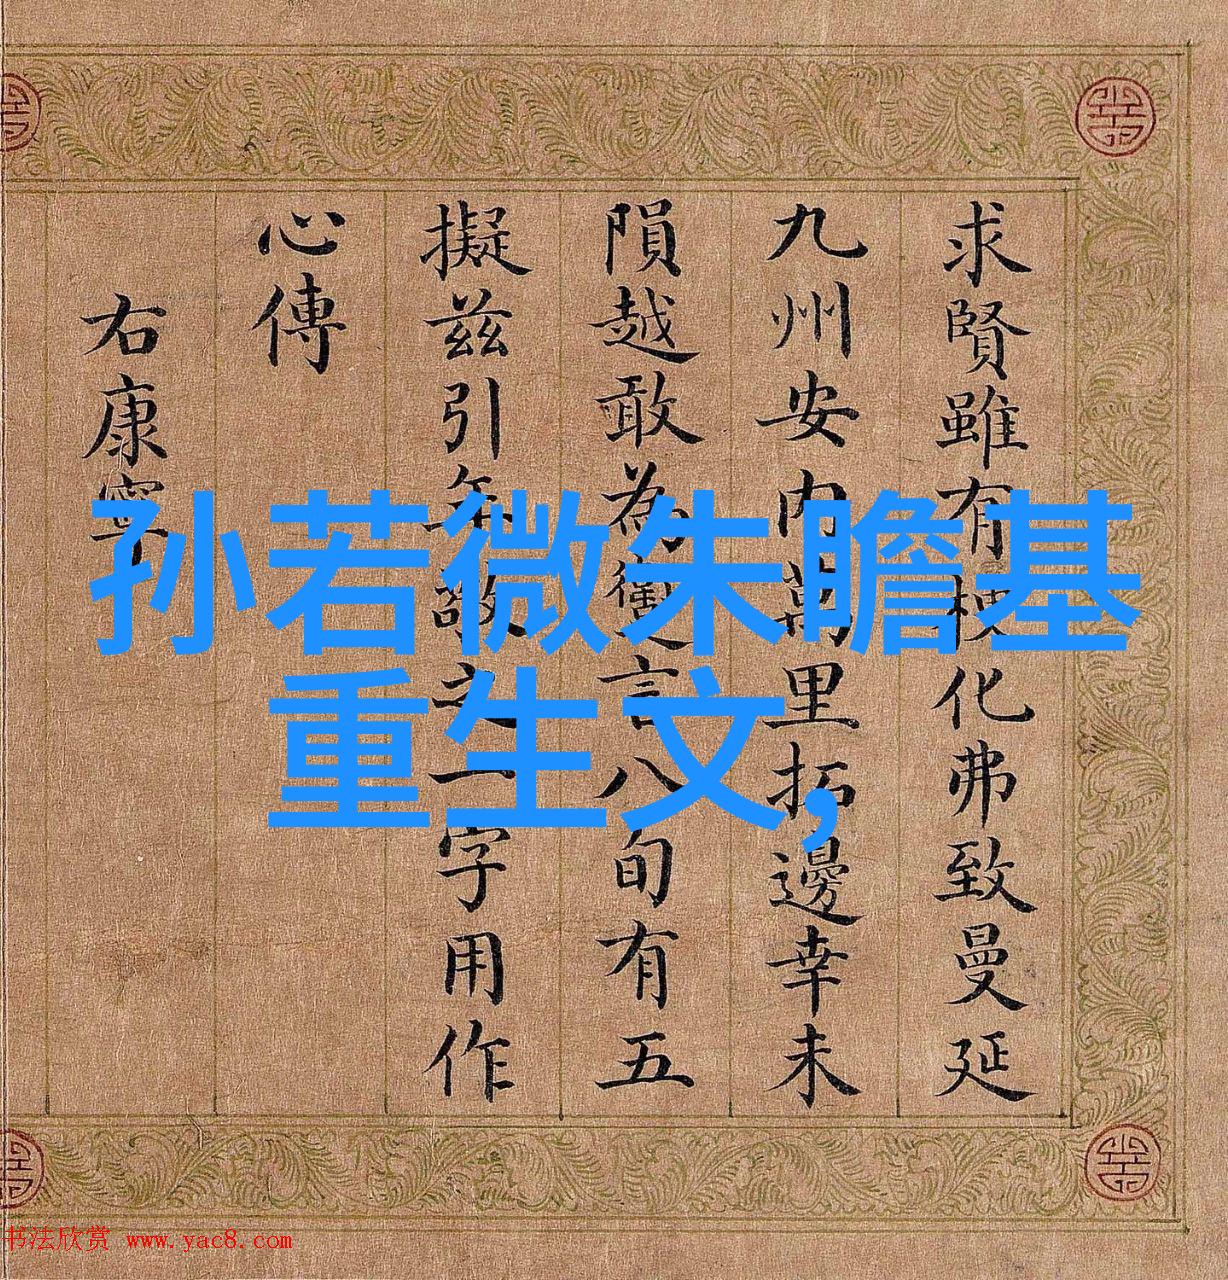 求賢雖有梗化弗致曼延
九州安内萬里拓邊幸未
隕越敢為衛。言八旬有五
擬兹引年敬之一字用作
心傳
右康寧
孙若微朱瞻基
重生文,
书法欣赏 www.yac8.com